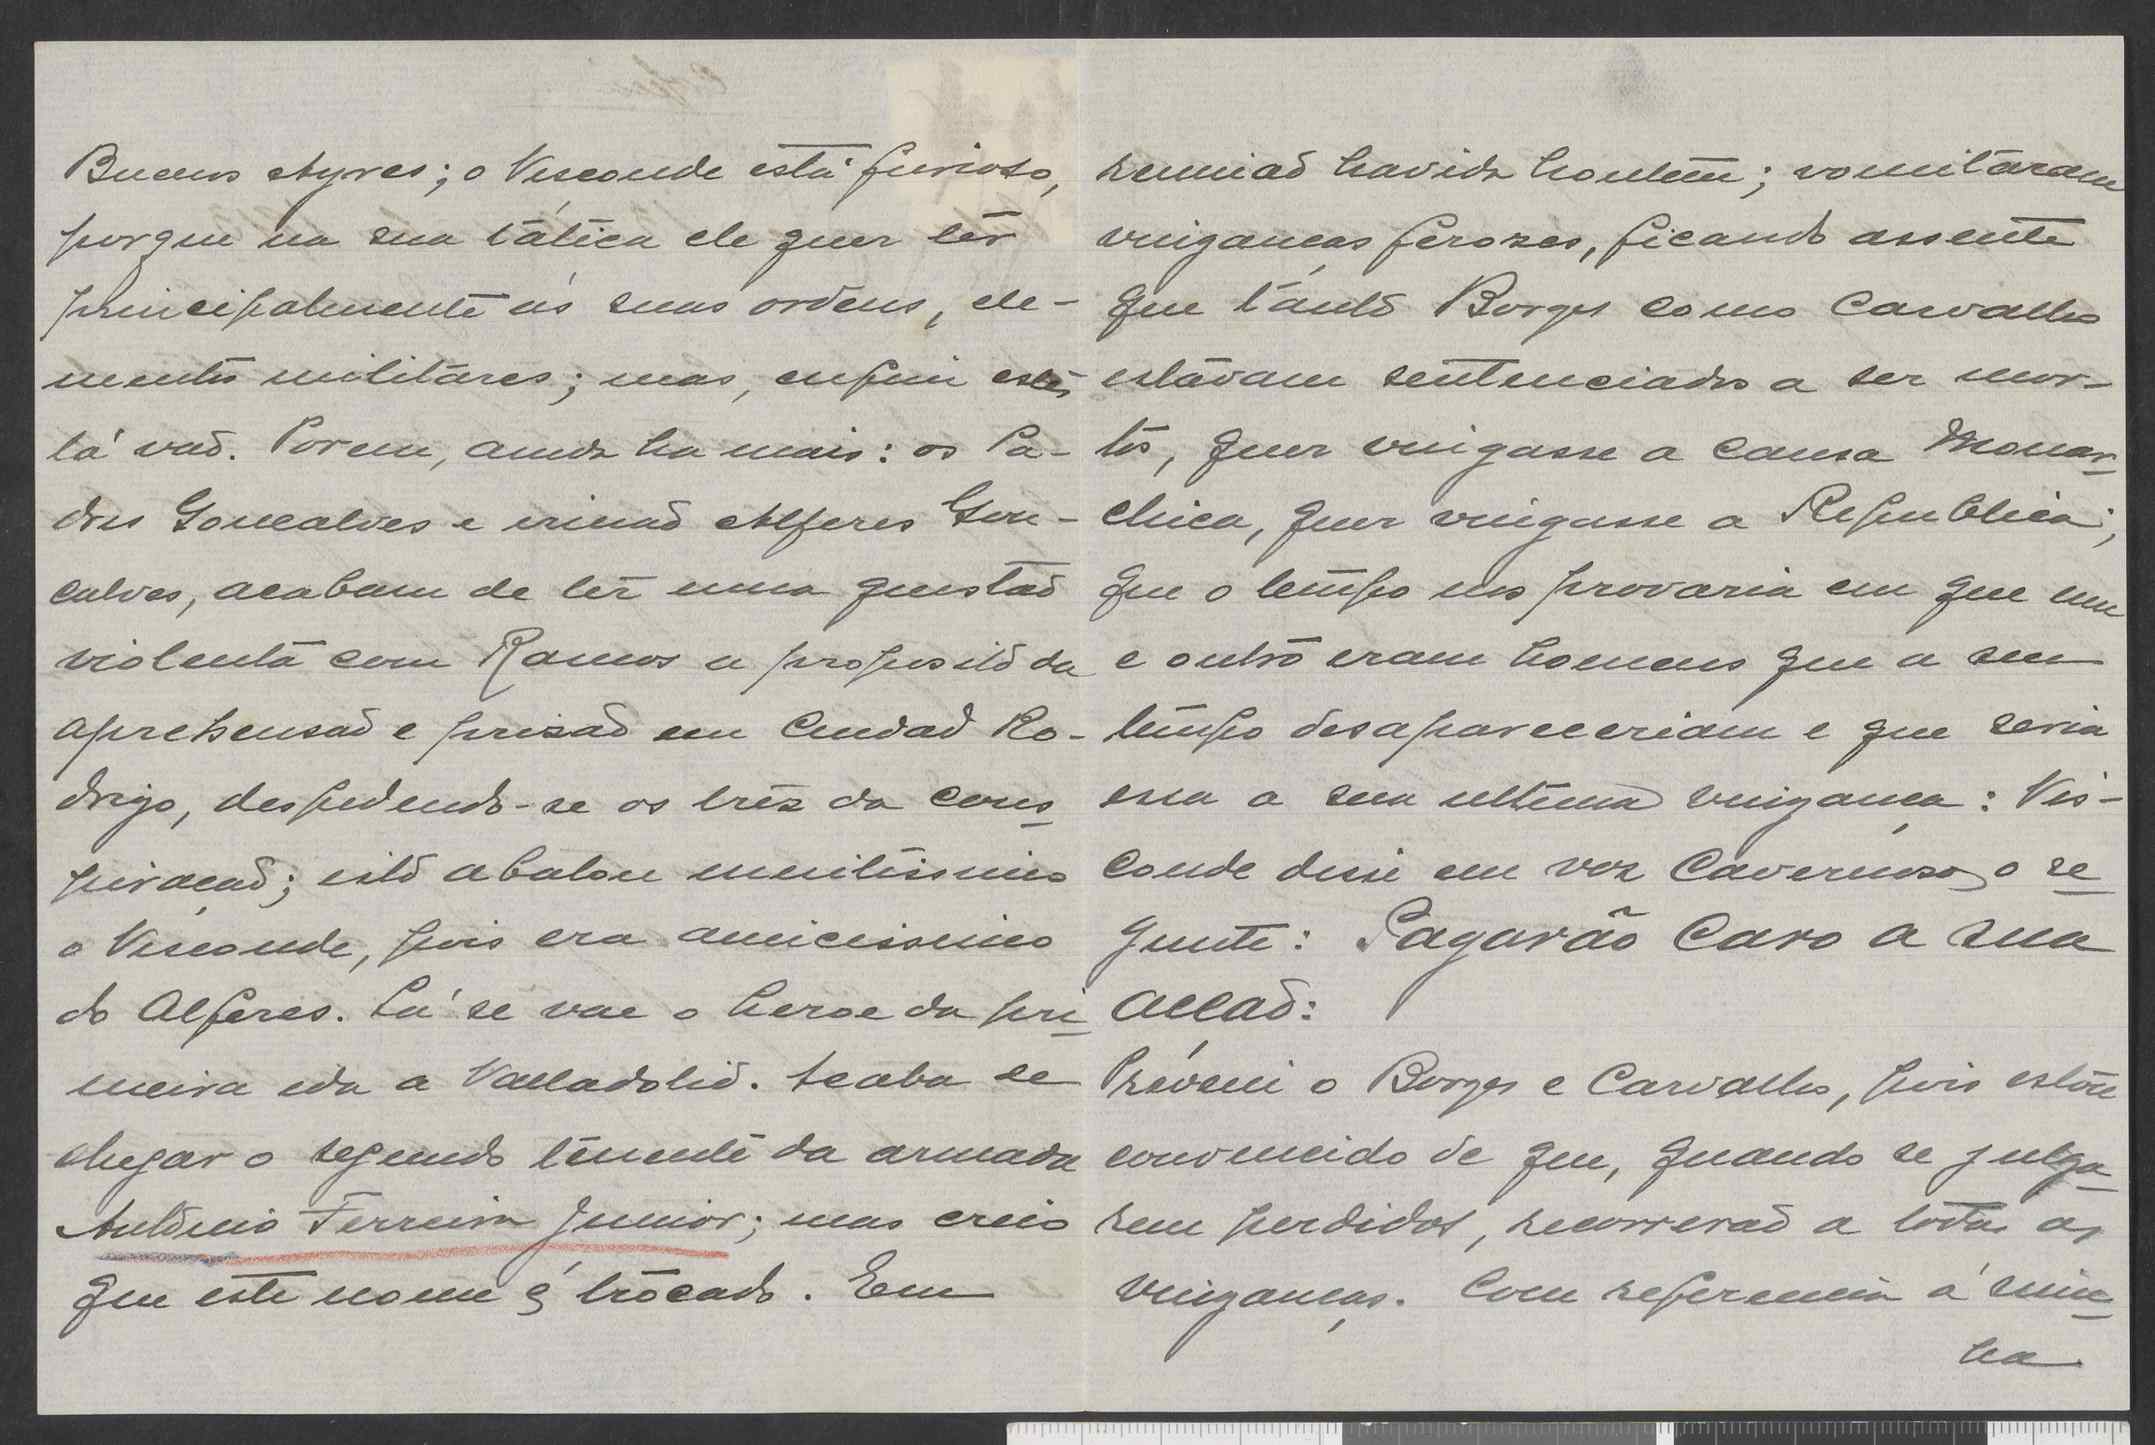 Buenos Ayres; o Visconde está furioso,
porque na sua tática ele quer têr
principalmente ás suas ordens, ele-
mentos militares; mas, enfim estes
lá vaõ. Porem, ainda ha mais: os Pa-
dres Gonçalves e irmaõ Alferes Gon-
calves, acabam de têr uma questaõ
violenta com Ramos a proposito da
aprehensaõ e prizaõ em Ciudad Ro-
drigo, despedendo-se os trêz da cons
piraçaõ; isto abalou muitissimo
o Visconde, pois era amicissimo
do Alferes. Lá se vae o heroe da pri
meira ida a Valladolid. Acaba de
chegar o segundo tenente da armada
António Ferreira Junior; mas creio
que este nome é trocado. Em
reuniaõ havida hontem; vomitaram
vinganças ferozes, ficando assente
que tanto Borges como Carvalho
estavam sentenciados a ser mor-
tos, quer vingasse a causa Monar
chica, quer vingasse a Republica;
que o tempo nos provaria em que um
e outro eram homens que a seu
tempo desapareceriam e que seria
essa a sua ultima vingança: Vis-
conde disse em voz Cavernosa o se
guente: Pagarão Caro a sua
acçaõ:
Préveni o Borges e Carvalho, pois estou
convencido de que, quando se julga
rem perdidos, recorreraõ a todas as
vinganças. Com referencia á min
ha